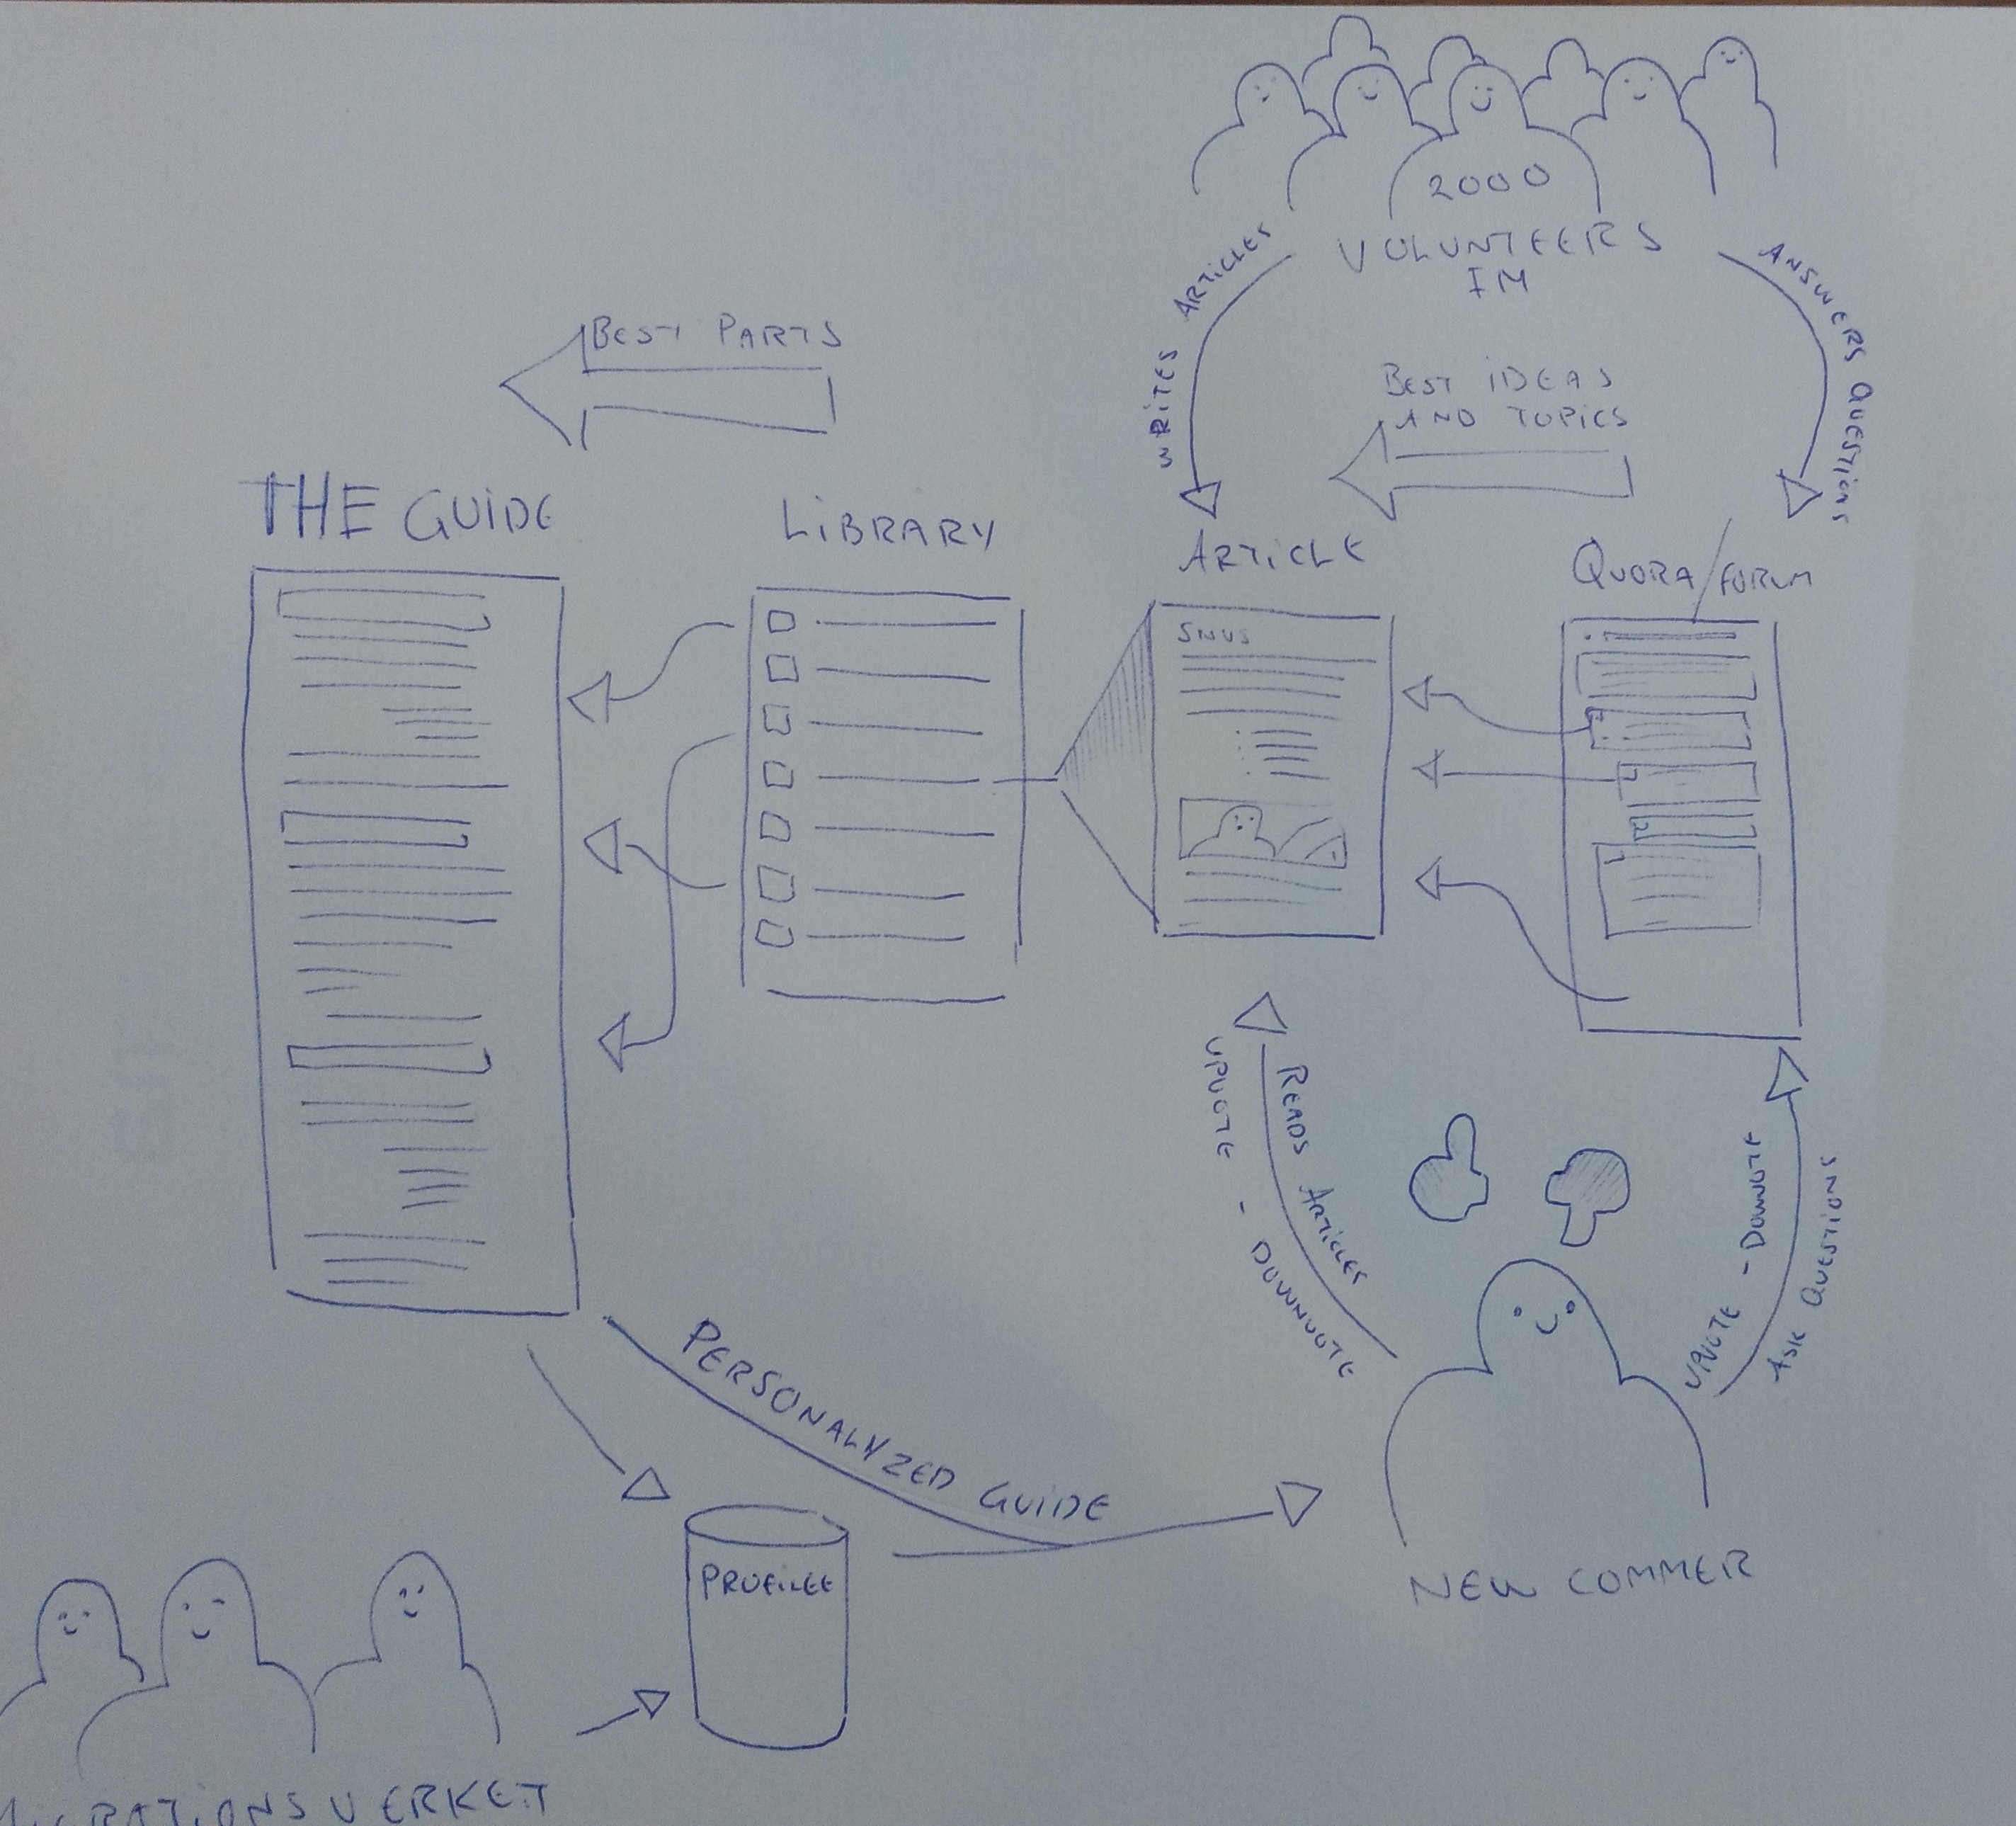 2000
VOLUNTEERS
IM
WRITES ARTICLES
ANSWERS QUESTIONS
BEST PARTS
BEST IDEAS
AND TOPICS
THE GUIDE
LIBRARY
ARTICLE
QUORA/FORUM
SNUS
READS ARTICLES
UPVOTE - DOWNVOTE
UPVOTE - DOWNVOTE
ASK QUESTIONS
PERSONALYZED GUIDE
PROFILEE
NEW COMMER
MIGRATIONSVERKET